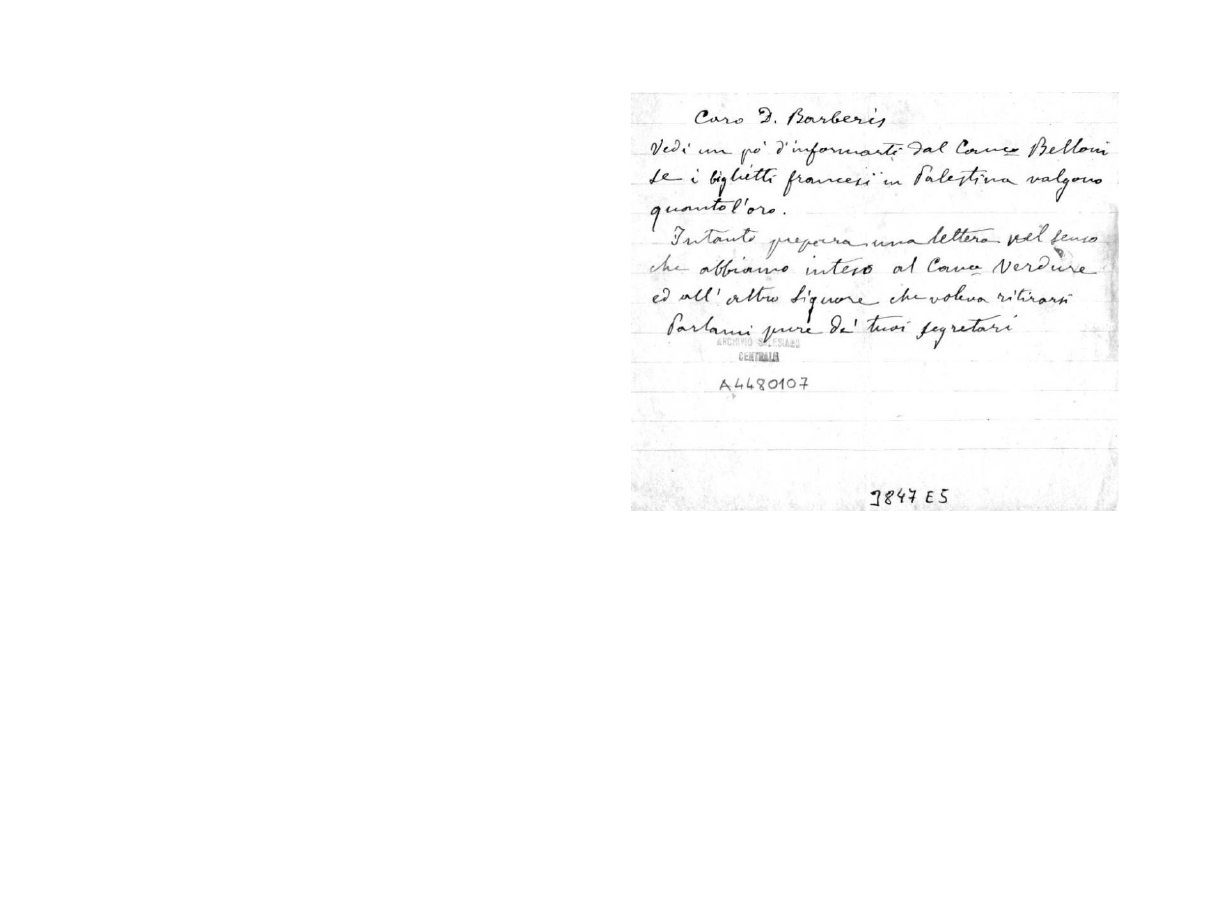 Caro D. Barberis
Vedi un pò d'informarti dal Canco Belloni
se i biglietti francesi in Palestina valgono
quanto l'oro.
Intanto prepara una lettera nel senso
che abbiamo inteso al Canco Verdure
ed all' altro Signore che voleva ritirarsi
Parlami pure de' tuoi segretari
ARCHIVIO SALESIANO
CENTRALE
A4480107
3847 E5